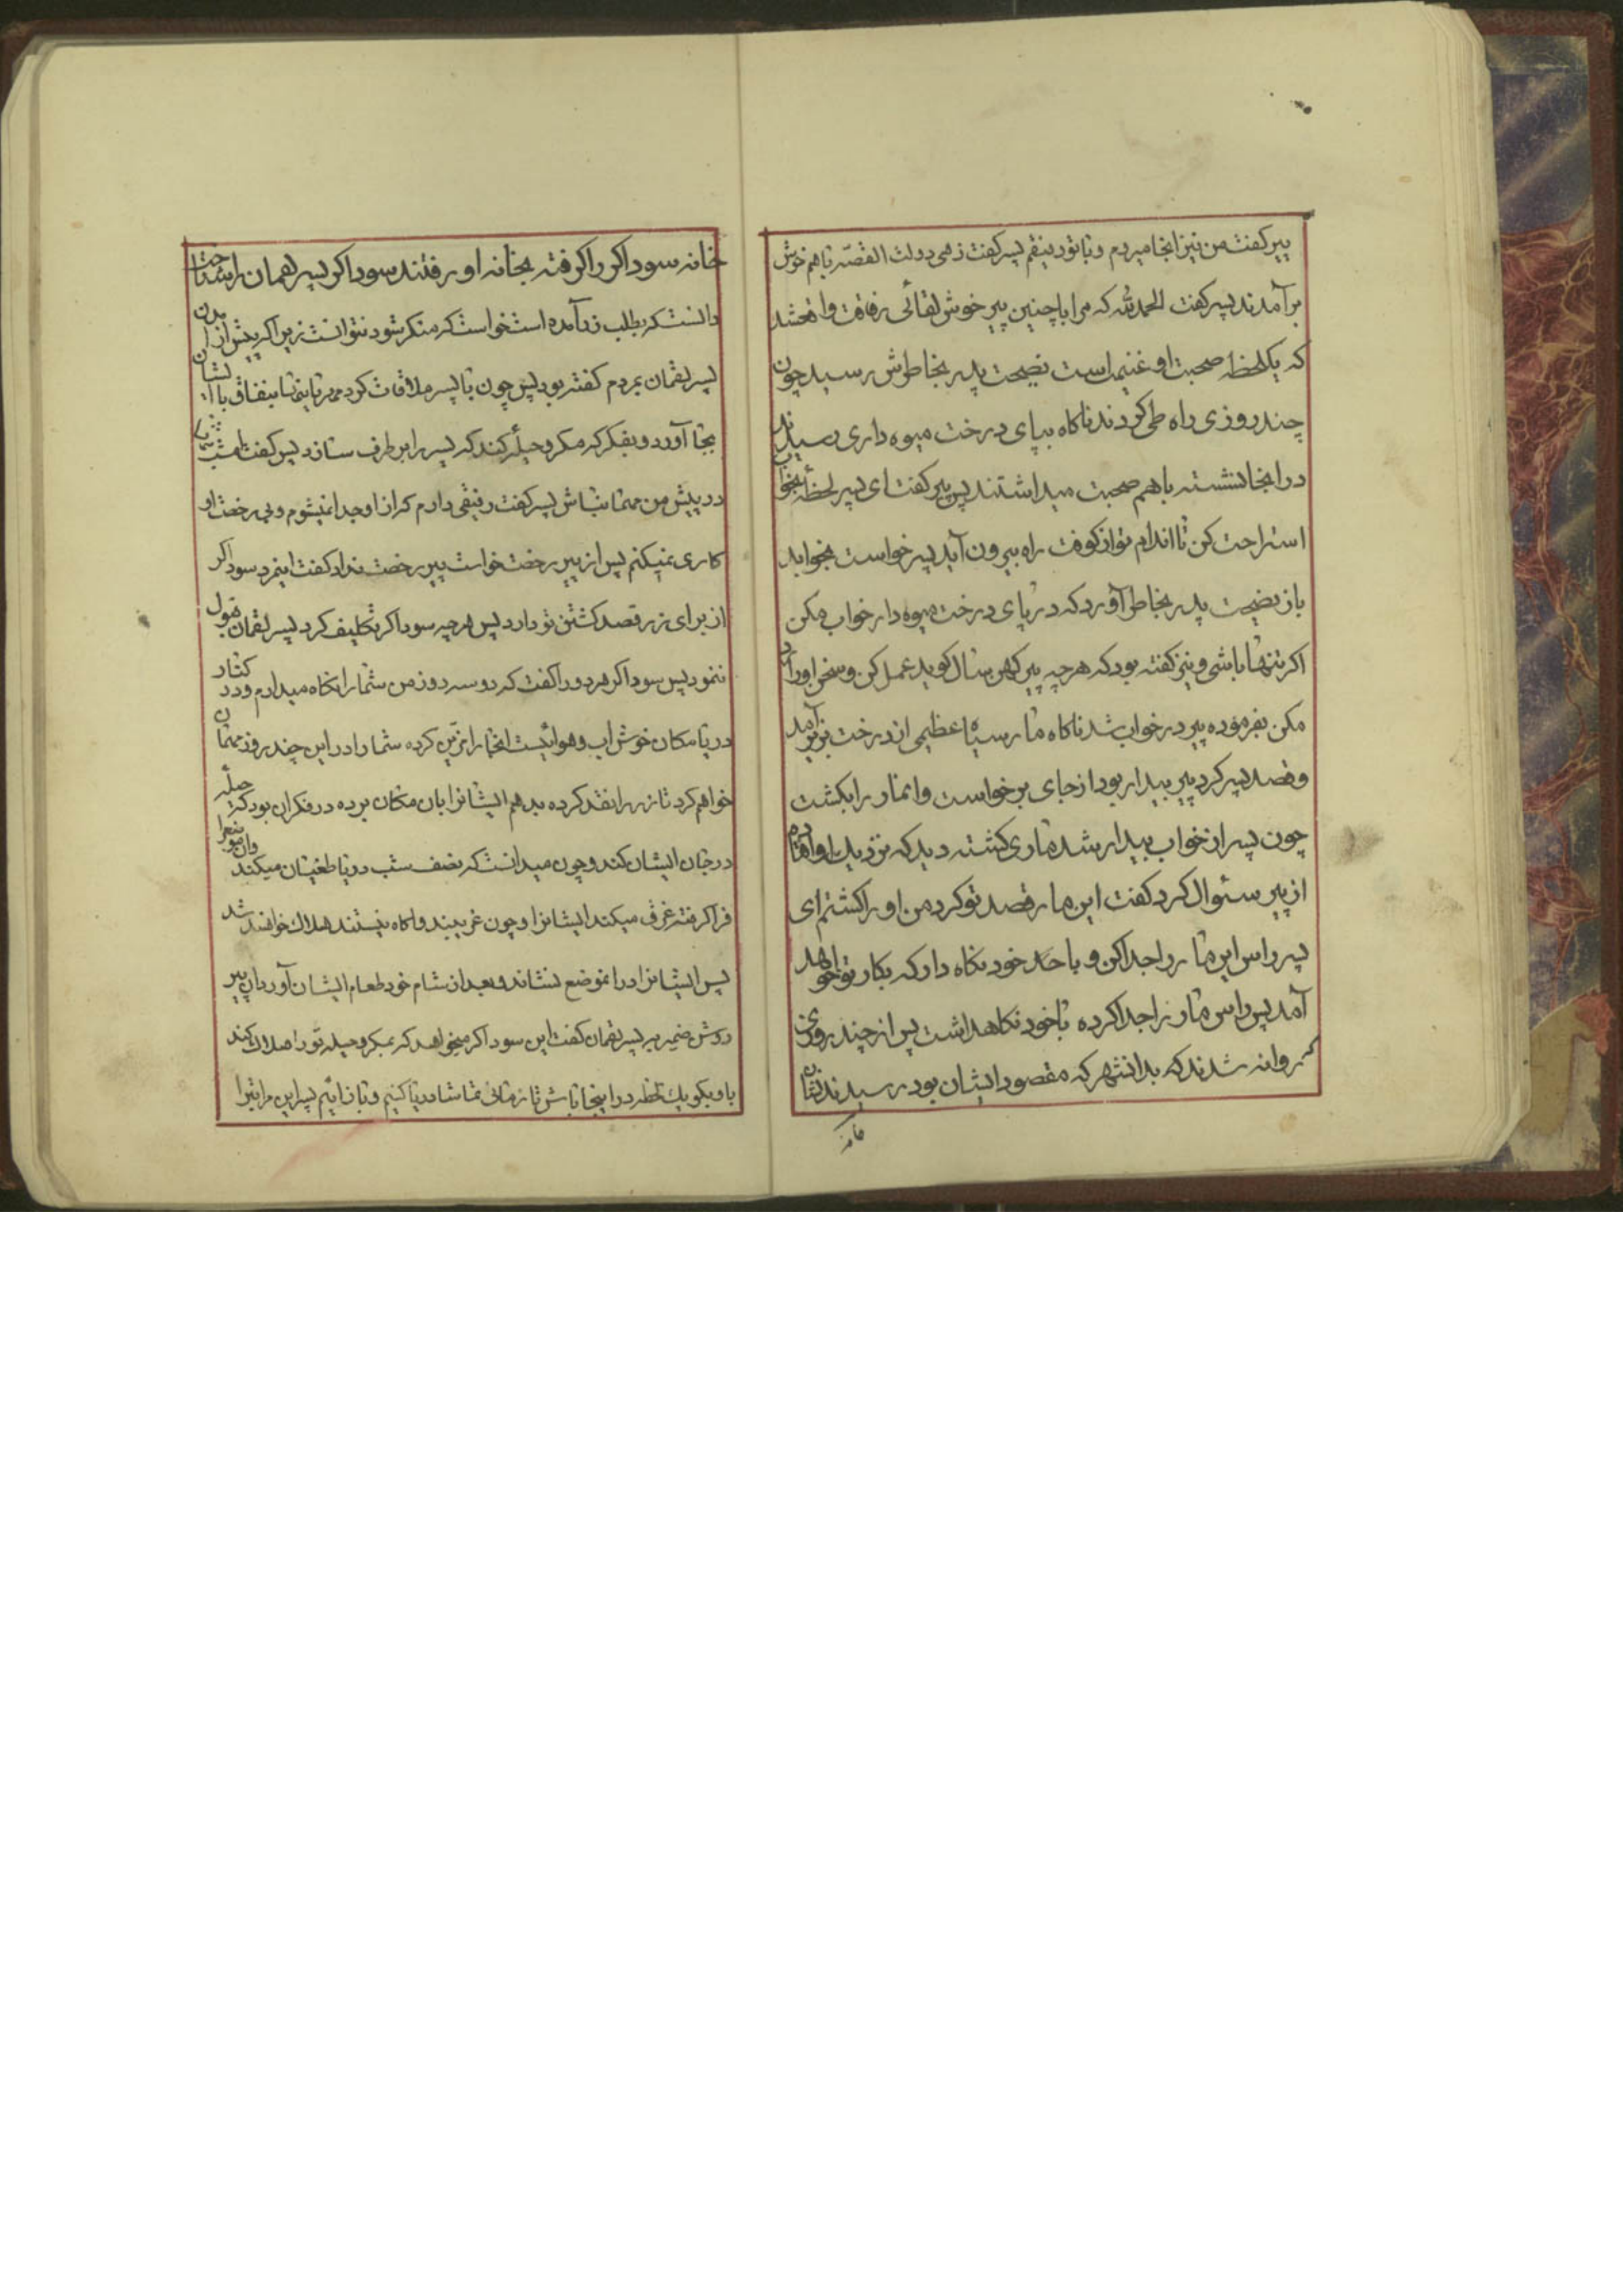 پیر کفت من نیز انجا میروم و با تو رفیقم پسر کفت زهی دولت القصّه باهم خوش
برآمدند پسر کفت الحمدلله که مرا با چنین پیر خوش لقائی رفاقت واقعشد
که یکلحظه صحبت او غنیمت است نصیحت پدر بخاطرش رسید چون
چند روزی راه طی کردند ناکاه بپای درخت میوه داری رسیدند
در انجا نشسته باهم صحبت میداشتند پس پیر کفت ای پسر لحظهٔ بخواب
استراحت کن تا اندام تو از کوفت راه بیرون آید پسر خواست بخوابد
باز نصیحت پدر بخاطر آورد که در پای درخت میوه دار خواب مکن
اکر تنها باشی و نیز کفته بود که هرچه پیر کهن سال کوید عمل کن و سخن او رد
مکن بفرموده پیر در خواب شد ناکاه مار سیاه عظیمی از درخت بزیر آمد
و قصد پسر کرد پیر بیدار بود از جای برخواست و انمار را بکشت
چون پسر از خواب بیدار شد ماری کشته دید که نزدیك او افتاده
از پیر سئوال کرد کفت این مار قصد تو کرد من او را کشتم ای
پسر راس این مار را جدا کن و با خود نکاه دار که بکار تو خواهد
آمد پس راس مار را جدا کرده با خود نکاهداشت پس از چند روزی
روانه شدند که بدانشهر که مقصود ایشان بود رسیدند نشان
خانه
خانه سوداکر را کرفته بخانه او رفتند سوداکر پسر لقمان را شناخت
دانست که بطلب زر آمده است خواست که منکر شود نتوانست زیرا که پیش از آمدن
پسر لقمان بمردم کفته بود پس چون با پسر ملاقات کرد بنفاق با ایشان
بجا آورد و بفکر که مکر و حیلهٔ کند که پسر را بر طرف سازد پس کفت امشب شما
در پیش من مهمان باش پسر کفت رفیقی دارم که از او جدا نمیشوم و بی رخصت او
کاری نمیکنم پس از پیر رخصت خواست پیر رخصت نداد کفت اینمرد سوداکر
از برای زر قصد کشتن تو دارد پس هرچه سوداکر تکلیف کرد پسر لقمان قبول
ننمود پس سوداکر هر دو را کفت که دو سه روز من شما را نکاه میدارم و در کنار
دریا مکان خوش اب و هوائیست انجا را تزیین کرده شما را در این چند روز مهمان
خواهم کرد تا زر را نقد کرده بدهم ایشانرا بان مکان برده در فکر ان بود که حیلهٔ
در جان ایشان کند و چون میدانست که نصف شب دریا طغیان میکند و ان موضع را
فرا کرفته غرق میکند ایشانرا و چون غریبند و اکاه نیستند هلاك خواهند شد
پس ایشانرا در انموضع نشاند و بعد از شام خود طعام ایشان آورد ان پیر
روشن ضمیر به پسر لقمان کفت این سوداکر میخواهد که بمکر و حیله تو را هلاك کند
باو بکو یك لحظه در اینجا باش تا زمانی تماشا دریا کنیم و باز ائیم پسر این مراتبرا